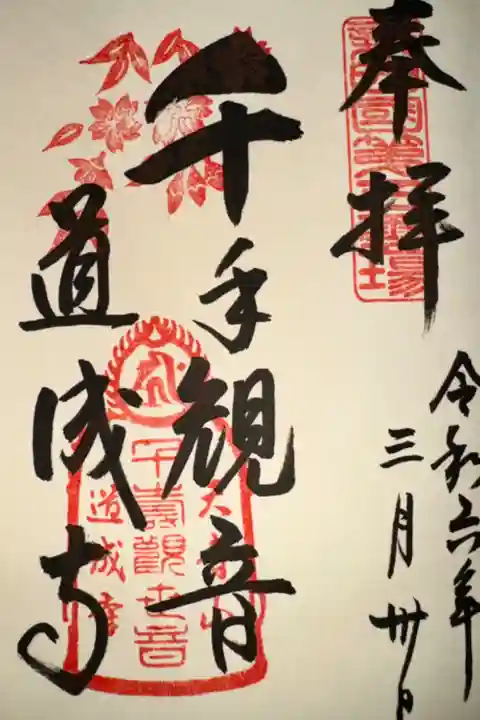 奉拝
令和六年
三月卅日
千手観音
道成寺
千手観世音
道成寺